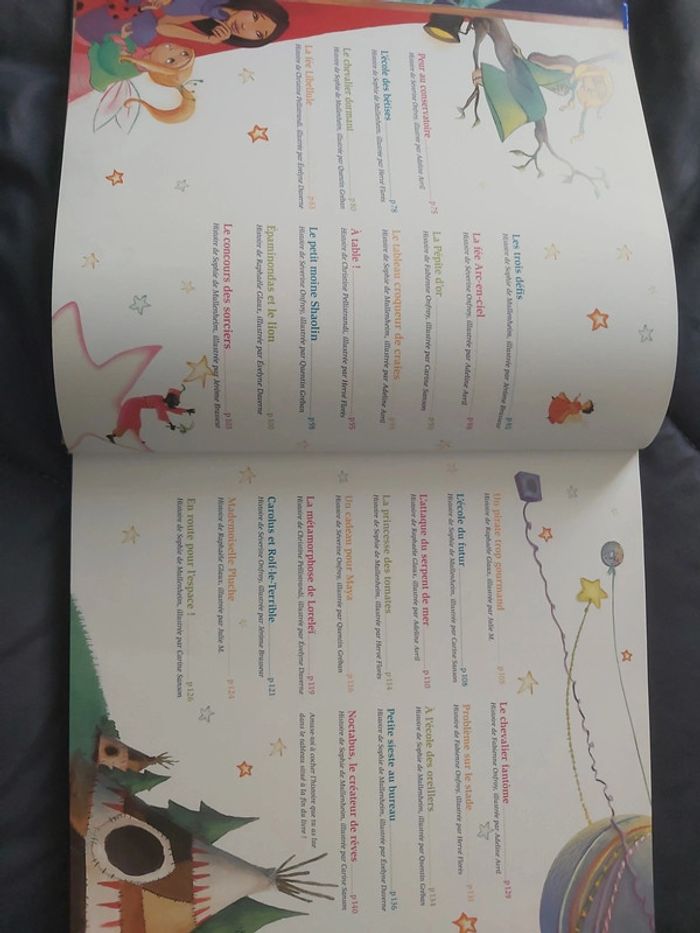 Peur au conservatoire p 75
Histoire de Séverine Onfroy, illustrée par Adeline Avril
L'école des bêtises p 78
Histoire de Sophie de Mullenheim, illustrée par Hervé Florès
Le chevalier dormant p 80
Histoire de Sophie de Mullenheim, illustrée par Quentin Gréban
La fée Libellule p 83
Histoire de Christine Pellistrandi, illustrée par Évelyne Duverne
Les trois défis p 85
Histoire de Sophie de Mullenheim, illustrée par Jérôme Brasseur
La fée Arc-en-ciel p 88
Histoire de Séverine Onfroy, illustrée par Adeline Avril
La Pépite d'or p 90
Histoire de Fabienne Onfroy, illustrée par Carine Sanson
Le tableau croqueur de craies p 93
Histoire de Sophie de Mullenheim, illustrée par Adeline Avril
À table ! p 95
Histoire de Christine Pellistrandi, illustrée par Hervé Florès
Le petit moine Shaolin p 98
Histoire de Séverine Onfroy, illustrée par Quentin Gréban
Épaminondas et le lion p 100
Histoire de Raphaële Glaux, illustrée par Évelyne Duverne
Le concours des sorciers p 103
Histoire de Sophie de Mullenheim, illustrée par Jérôme Brasseur
Un pirate trop gourmand p 105
Histoire de Raphaële Glaux, illustrée par Julie M.
L'école du futur p 108
Histoire de Sophie de Mullenheim, illustrée par Carine Sanson
L'attaque du serpent de mer p 110
Histoire de Raphaële Glaux, illustrée par Adeline Avril
La princesse des tomates p 114
Histoire de Sophie de Mullenheim, illustrée par Hervé Florès
Un cadeau pour Maya p 116
Histoire de Séverine Onfroy, illustrée par Quentin Gréban
La métamorphose de Loreleï p 119
Histoire de Christine Pellistrandi, illustrée par Évelyne Duverne
Carolus et Rolf-le-Terrible p 121
Histoire de Séverine Onfroy, illustrée par Jérôme Brasseur
Mademoiselle Pluche p 124
Histoire de Raphaële Glaux, illustrée par Julie M.
En route pour l'espace ! p 126
Histoire de Sophie de Mullenheim, illustrée par Carine Sanson
Le chevalier fantôme p 129
Histoire de Fabienne Onfroy, illustrée par Adeline Avril
Problème sur le stade p 131
Histoire de Fabienne Onfroy, illustrée par Hervé Florès
À l'école des oreillers p 134
Histoire de Sophie de Mullenheim, illustrée par Quentin Gréban
Petite sieste au bureau p 136
Histoire de Sophie de Mullenheim, illustrée par Évelyne Duverne
Noctabus, le créateur de rêves p 140
Histoire de Sophie de Mullenheim, illustrée par Carine Sanson
Amuse-toi à cocher l'histoire que tu as lue
dans le tableau situé à la fin du livre !